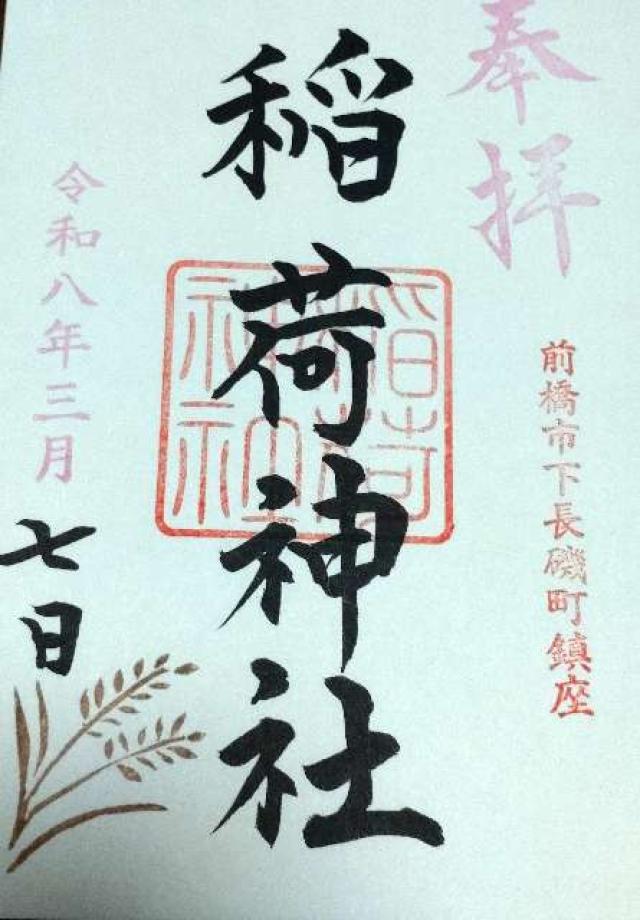 奉拝
前橋市下長磯町鎮座
稲荷神社
稲荷
神社
令和八年三月
七日